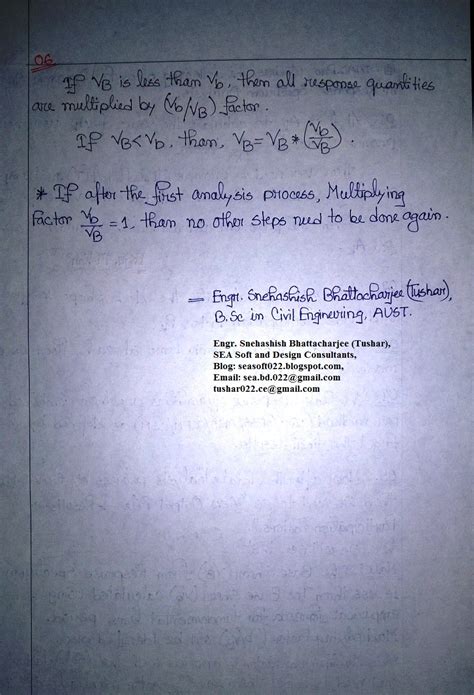 06
If VB is less than Vb, then all response quantities
are multiplied by (Vb/VB) factor.
If VB<Vb, than, VB = VB * (Vb/VB).
* If after the first analysis process, Multiplying
Factor Vb/VB = 1, than no other steps need to be done again.
– Engr. Snehashish Bhattacharjee (Tushar),
B.Sc in Civil Engineering, AUST.
Engr. Snehashish Bhattacharjee (Tushar),
SEA Soft and Design Consultants,
Blog: seasoft022.blogspot.com,
Email: sea.bd.022@gmail.com
tushar022.ce@gmail.com